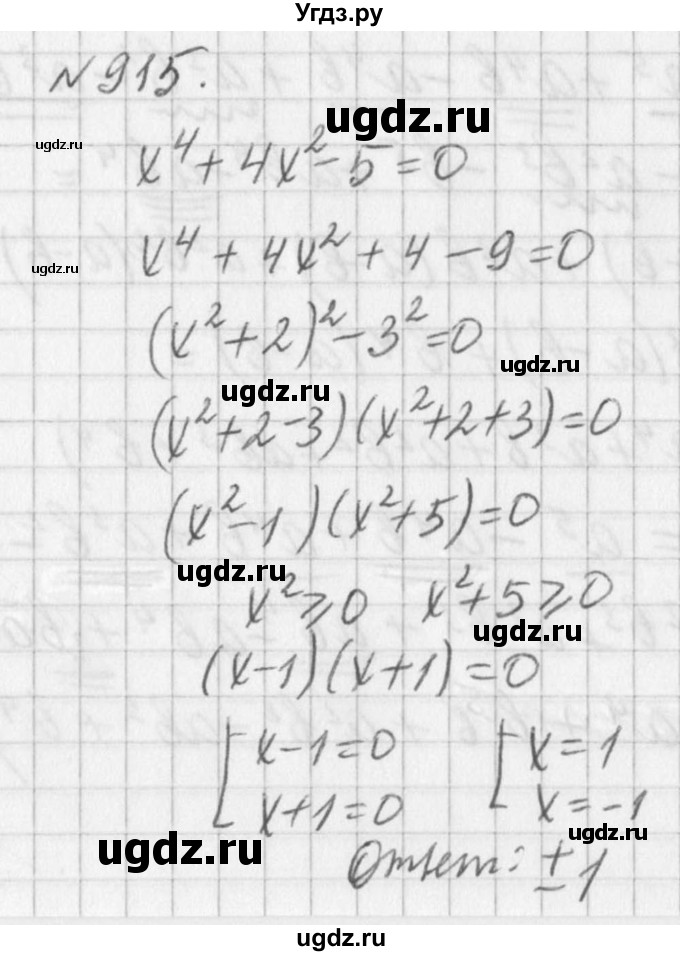 Угдз.ру
№ 915.
ugdz.ru
ugdz.ru
x⁴ + 4x² - 5 = 0
x⁴ + 4x² + 4 - 9 = 0
ugdz.ru
(x² + 2)² - 3² = 0
ugdz.ru
ugdz.ru
(x² + 2 - 3)(x² + 2 + 3) = 0
(x² - 1)(x² + 5) = 0
ugdz.ru
x² ⩾ 0 x² + 5 ⩾ 0
ugdz.ru
(x - 1)(x + 1) = 0
[ x - 1 = 0 [ x = 1
x + 1 = 0 x = -1
ugdz.ru
ugdz.ru
Ответ: ± 1
ugdz.ru